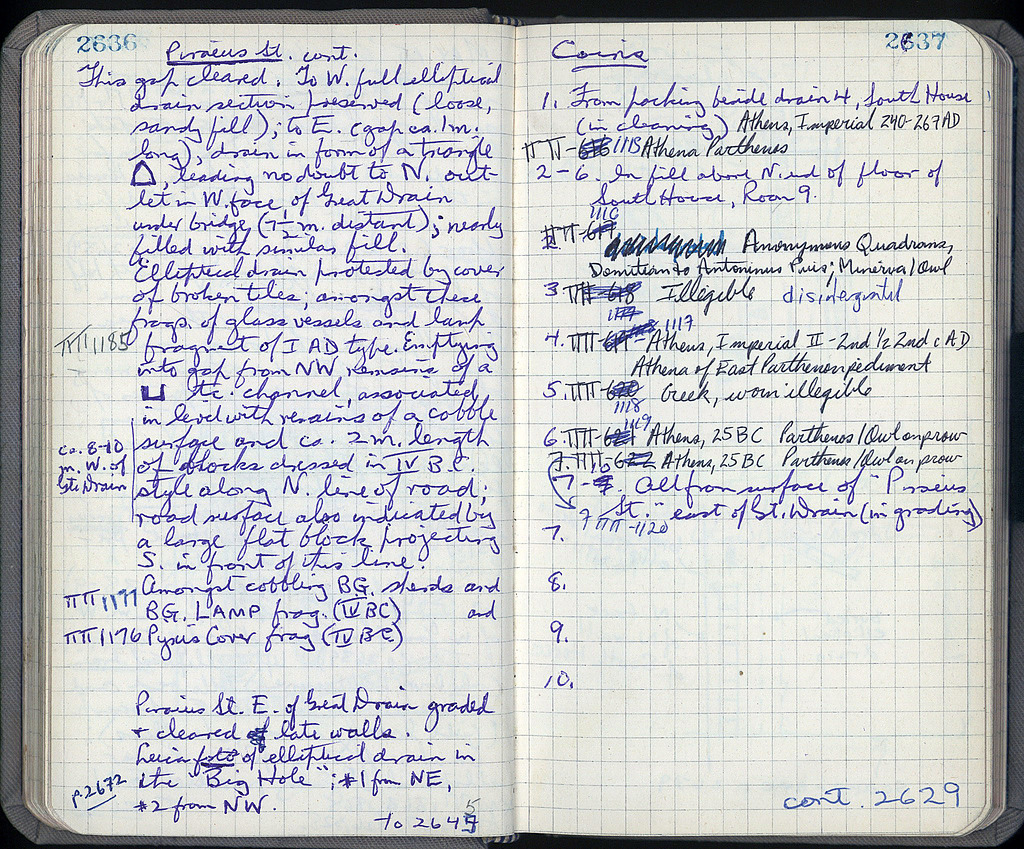 2636
Piraeus St. cont.
This gap cleared. To W. full elliptical
drain section preserved (loose,
sandy fill); to E. (gap ca. 1m.
long), drain in form of a triangle
, leading no doubt to N. out-
let in W. face of Great Drain
under bridge (7½ m. distant); nearly
filled with similar fill.
Elliptical drain protected by cover
of broken tiles; amongst these
frags. of glass vessels and lamp
ΠΠ 1185 fragment of I AD type. Emptying
into gap from NW remains of a
⊔ tc. channel, associated
in level with remains of a cobble
surface and ca. 2 m. length
of blocks dressed in IV B.C.
style along N. line of road;
ca. 8-10
m. W. of
Gt. Drain
road surface also indicated by
a large flat block projecting
S. in front of this line.
Amongst cobbling BG. sherds and
ΠΠ 1177 BG. LAMP frag. (IV BC) and
ΠΠ 1176 Pyxis Cover frag (IV BC)
Piraeus St. E. of Great Drain graded
+ cleared of late walls.
Leica foto of elliptical drain in
the "Big Hole"; #1 from NE,
p. 2672
#2 from NW.
to 2645
2637
Coins
1. From packing beside drain 4, South House
(in cleaning) Athens, Imperial 240-267 AD
ΠΠ-1115 Athena Parthenos
2-6. In fill above N. end of floor of
South House, Room 9.
1116
2. ΠΠ-617 Anonymous Quadrans,
Domitian to Antoninus Pius; Minerva/Owl
3. ΠΠ-618 Illegible disintegrated
1117
4. ΠΠ- 1117 Athens, Imperial II - 2nd ½ 2nd c AD
Athena of East Parthenon pediment
5. ΠΠ-620 Greek, worn illegible
1118
1119
6. ΠΠ-621 Athens, 25 BC Parthenos/Owl on prow
7. ΠΠ-622 Athens, 25 BC Parthenos/Owl on prow
7 - 9. All from surface of "Piraeus
St." east of Gt. Drain (in grading)
7 ΠΠ-1120
7.
8.
9.
10.
cont. 2629